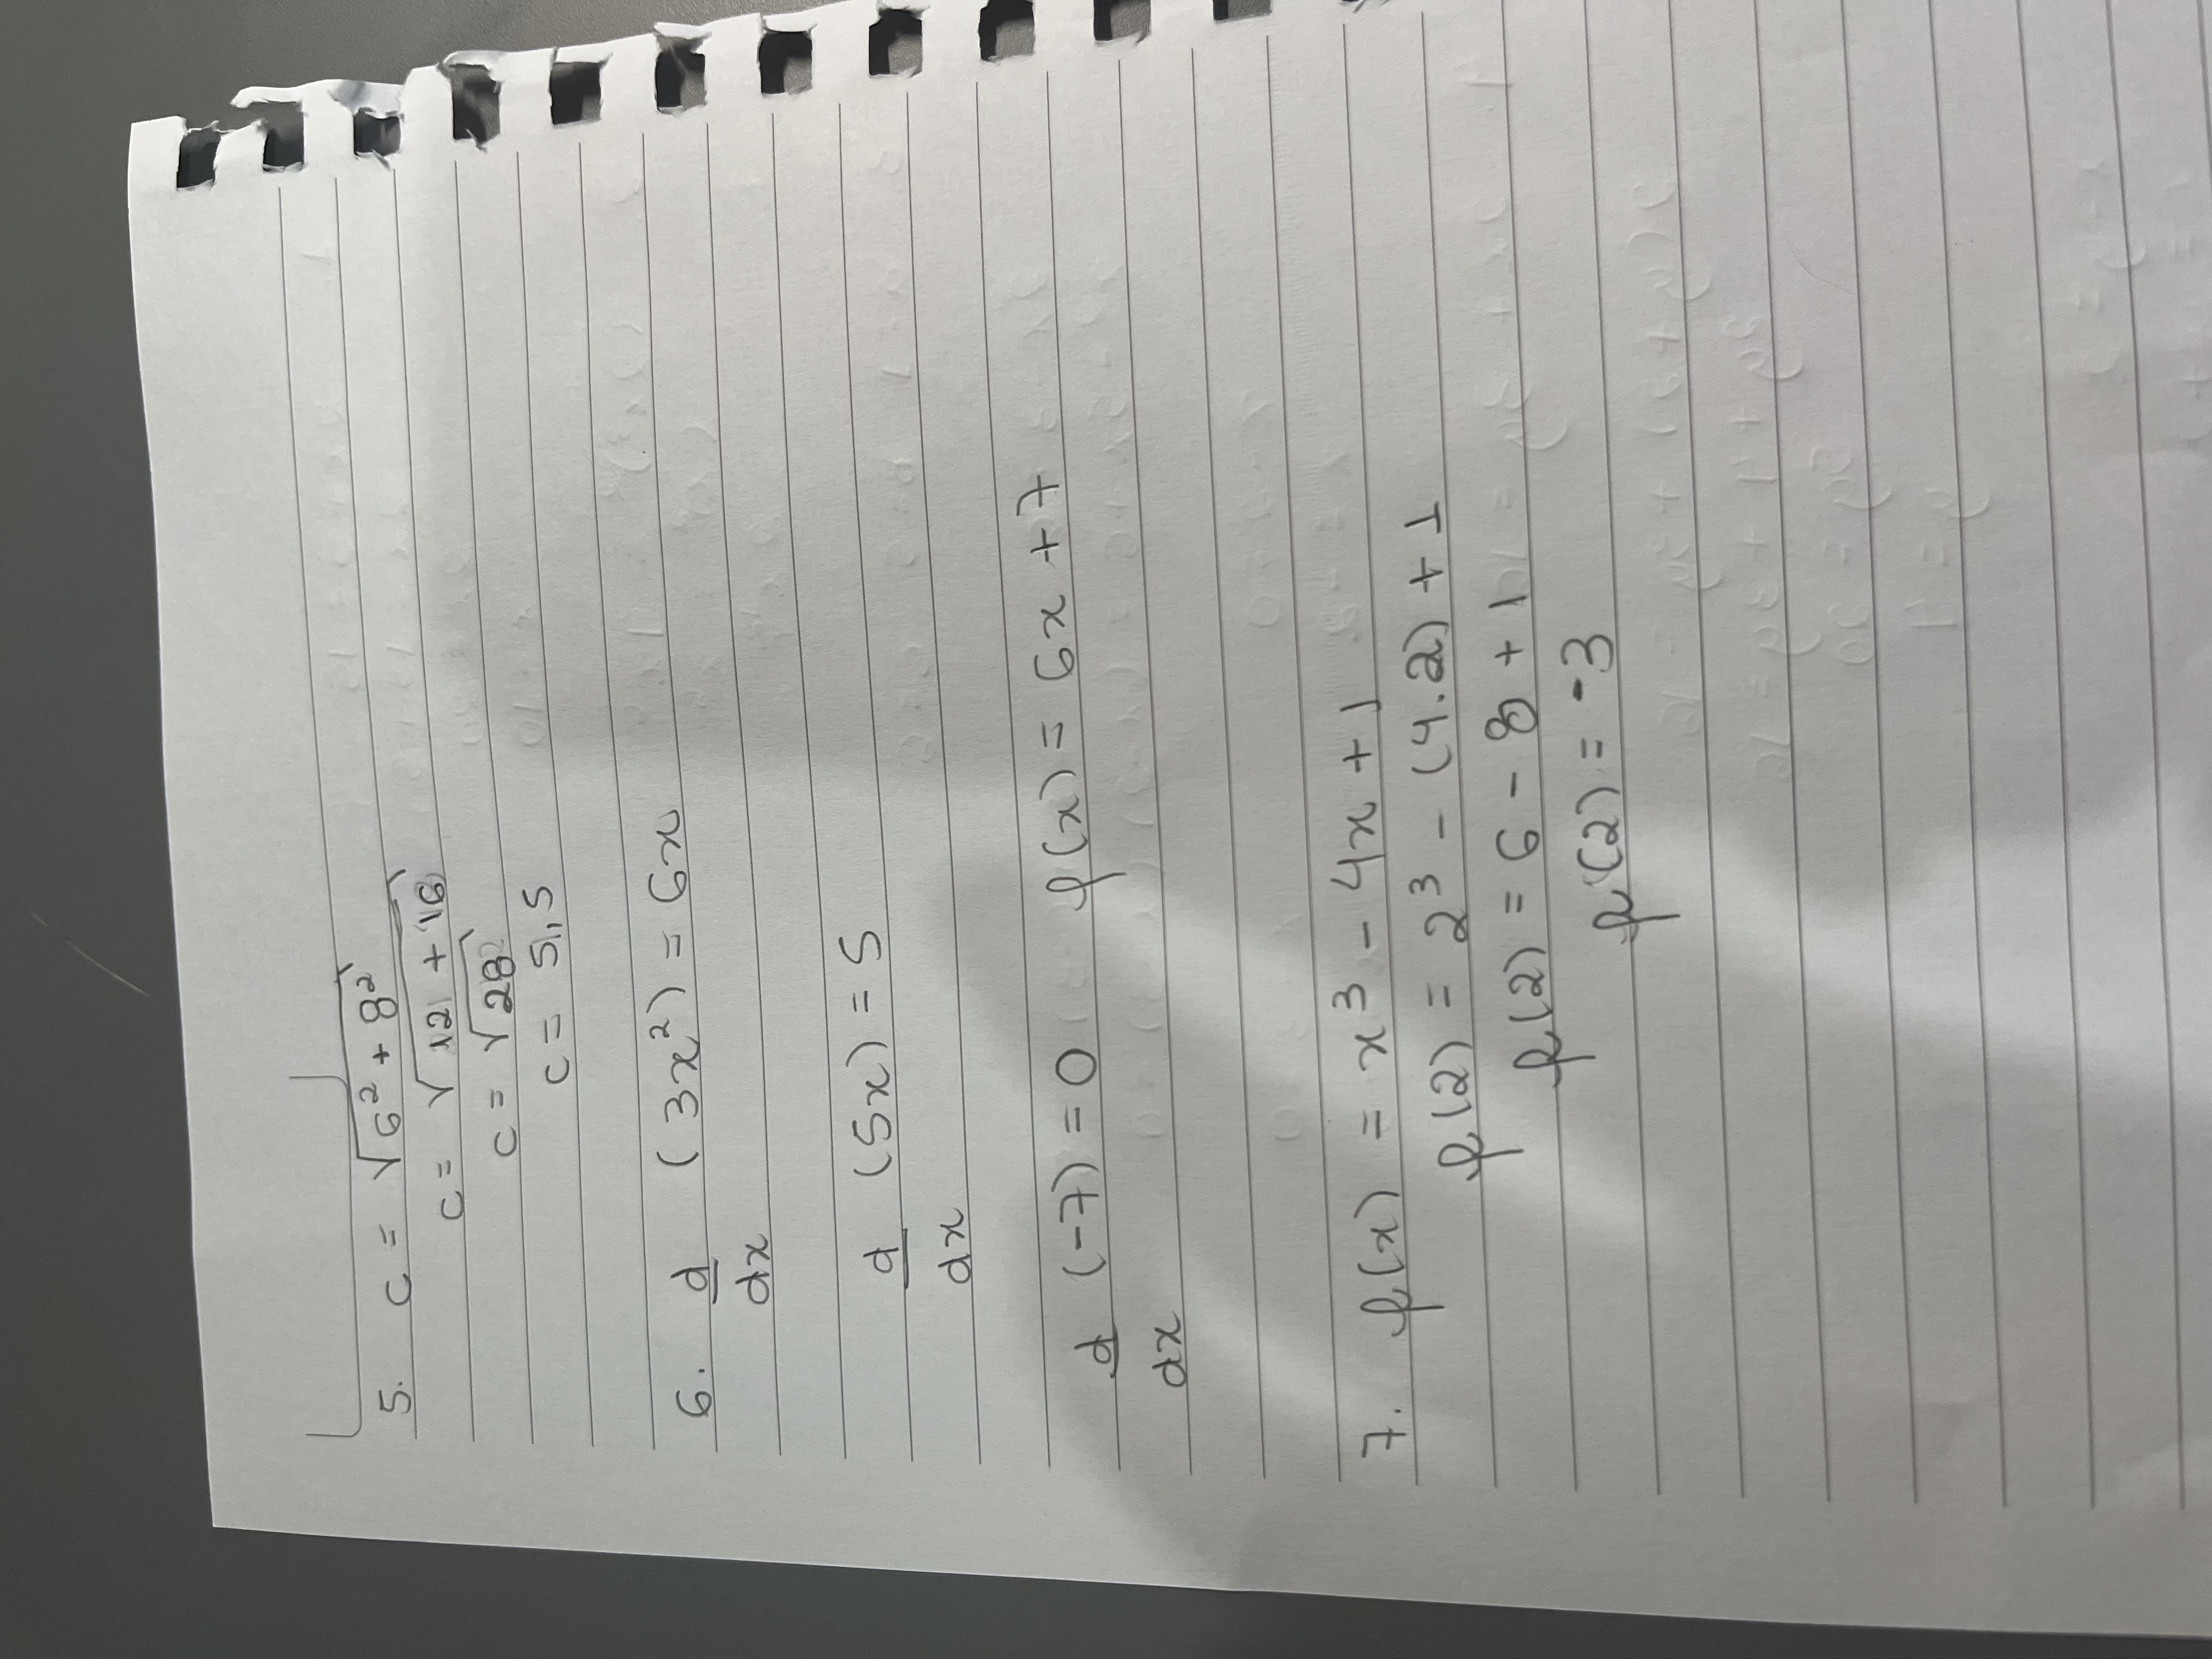 5. c = √6² + 8²
c = √12 + 16
c = √28
c = 5,5
6. d/dx (3x²) = 6x
d/dx (5x) = 5
d/dx (-7) = 0 f(x) = 6x + 7
7. f(x) = x³ - 4x + 1
f(2) = 2³ - (4.2) + 1
f(2) = 6 - 8 + 1
f(2) = -3